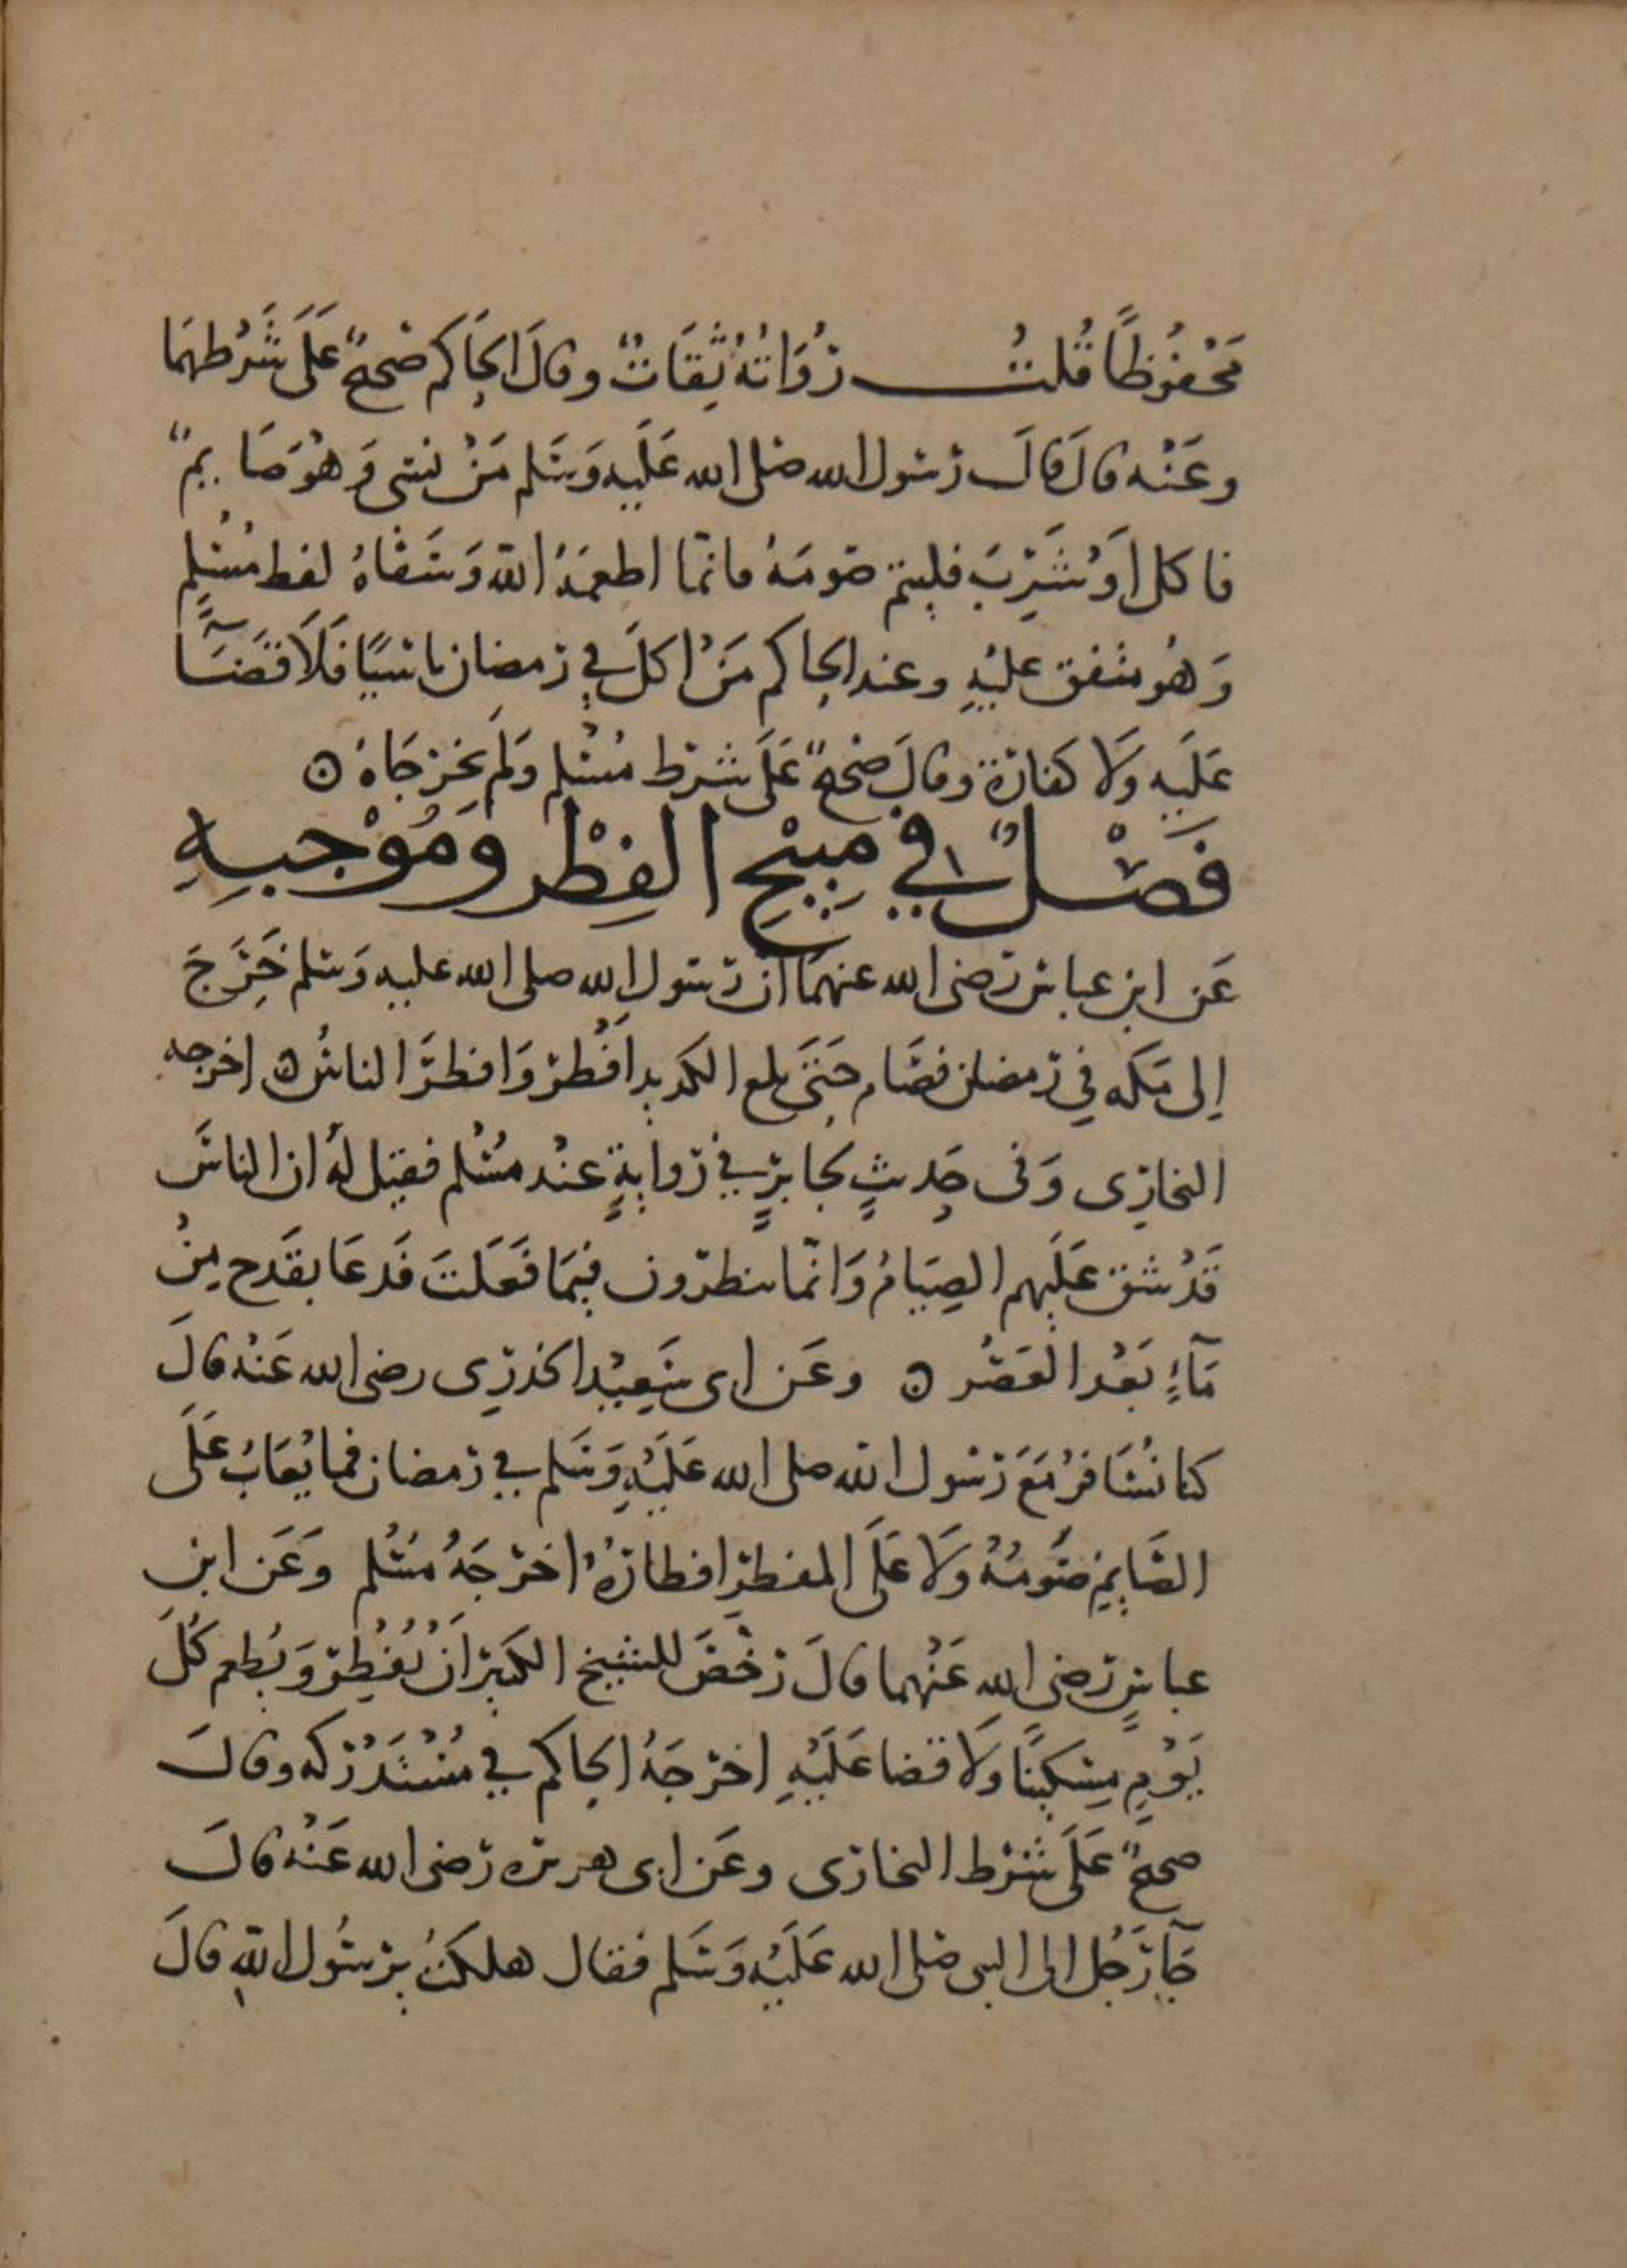 مَحْفُوظًا قُلتُ رُوَاتُهُ ثِقَاتٌ وقالَ الحَاكم صَحيحٌ عَلَى شَرْطهمَا
وعَنْه قالَ قالَ رَسُول الله صَلى الله عَلَيه وَسَلم مَنْ نسَى وَهْوَ صَايمٌ
فاكل اَوْ شَرِبَ فليتم صَومَهُ فانمّا اطعَمَهُ اللّه وَسَقاهُ لفظ مُسْلِم
وَهُو متفق عليْهِ وعند الحاكم مَنْ اكلَ في رَمضان ناسيًا فَلَا قَضَآً
عَلَيه وَلَا كفارَة وقالَ صَحيحٌ عَلَى شرط مُسْلم وَلَم يخرجَاهُ ۞
فَصْلٌ في مُبِيْحِ الفِطْر وَمُوْجبِهِ
عَن ابن عباس رَضى الله عنهمَا ان رَسُول الله صلى الله عليه وَسلم خَرَجَ
اِلى مَكه فِي رَمضان فصَام حَتَى بلغ الكديد افْطر وَافطرَ الناسُ ۞ اخرجه
البخارِى وَفى حَدِيثٍ لجابرٍ في رَوايةٍ عنْد مُسْلم فقيل لهُ ان الناسَ
قَدْ شق عَلَيهم الصِيَامُ وَانمّا ينظرُون فيمَا فَعَلتَ فَدعَا بقَدح مِنْ
مَآءٍ بَعْد العَصْر ۞ وعَن ابى سَعِيْد الخدرِى رضى الله عَنْه قالَ
كنا نُسَافرُ مَعَ رَسُول اللّه صلى الله عَلَيْهِ وَسَلم في رَمضان فما يُعَابُ عَلَى
الصَايِمِ صَومُهُ وَلَا عَلَى المفطِرِ افطارُهُ اخرَجَهُ مُسْلم وَعَن ابن
عباسٍ رَضى الله عَنْهما قالَ رَخّصَ للشيخ الكبَير اَنْ يُفْطِرَ وَيُطعم كُلَ
يَوْمٍ مِسكينًا وَلَا قضا عَلَيْهِ اخرجَهُ الحاكم في مُسْتَدْرَكه وقالَ
صحيحٌ عَلَى شرْط البخارى وعَن ابى هريره رَضى الله عَنْهُ قالَ
جَآ رَجُل الى النبى صَلى الله عَلَيْه وَسَلم فقال هلكتُ يرَسُول اللّهِ قالَ